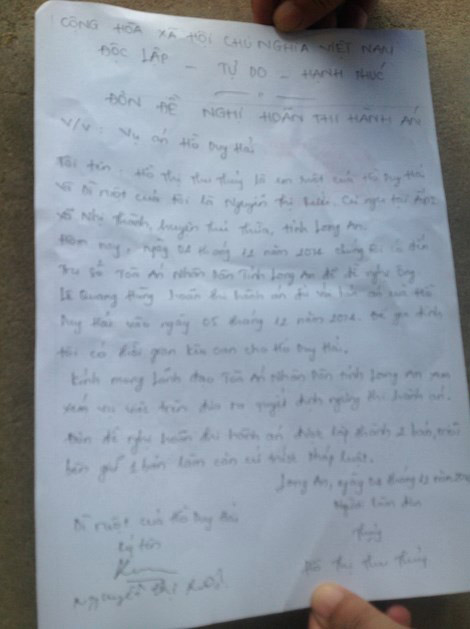 CỘNG HÒA XÃ HỘI CHỦ NGHĨA VIỆT NAM
ĐỘC LẬP - TỰ DO - HẠNH PHÚC
ĐƠN ĐỀ NGHỊ HOÃN THI HÀNH ÁN
V/v: Vụ án Hồ Duy Hải
Tôi tên: Hồ Thị Thu Thủy là em ruột của Hồ Duy Hải
Và Dì ruột của tôi là Nguyễn Thị Rưởi. Cư ngụ tại ấp 2
xã Nhị Thành, huyện Thủ Thừa, tỉnh Long An.
Hôm nay, ngày 04 tháng 12 năm 2014 chúng tôi có đến
Trụ sở Toà Án Nhân Dân Tỉnh Long An để đề nghị ông
Lê Quang Hùng hoãn thi hành án
Duy Hải vào ngày 05 tháng 12 năm 2014. Để gia đình
tôi có thời gian kêu oan cho Hồ Duy Hải.
Kính mong Lãnh đạo Toà Án Nhân Dân tỉnh Long An xem
xét vụ việc trên đưa ra quyết định ngừng thi hành án.
Đơn đề nghị hoãn thi hành án được lập thành 2 bản, mỗi
bên giữ 1 bản làm căn cứ trước pháp luật.
Long An, ngày 04 tháng 12 năm 2014
Người làm đơn
Dì ruột của Hồ Duy Hải
Ký tên
Thủy
Hồ Thị Thu Thủy
Nguyễn Thị Rưởi